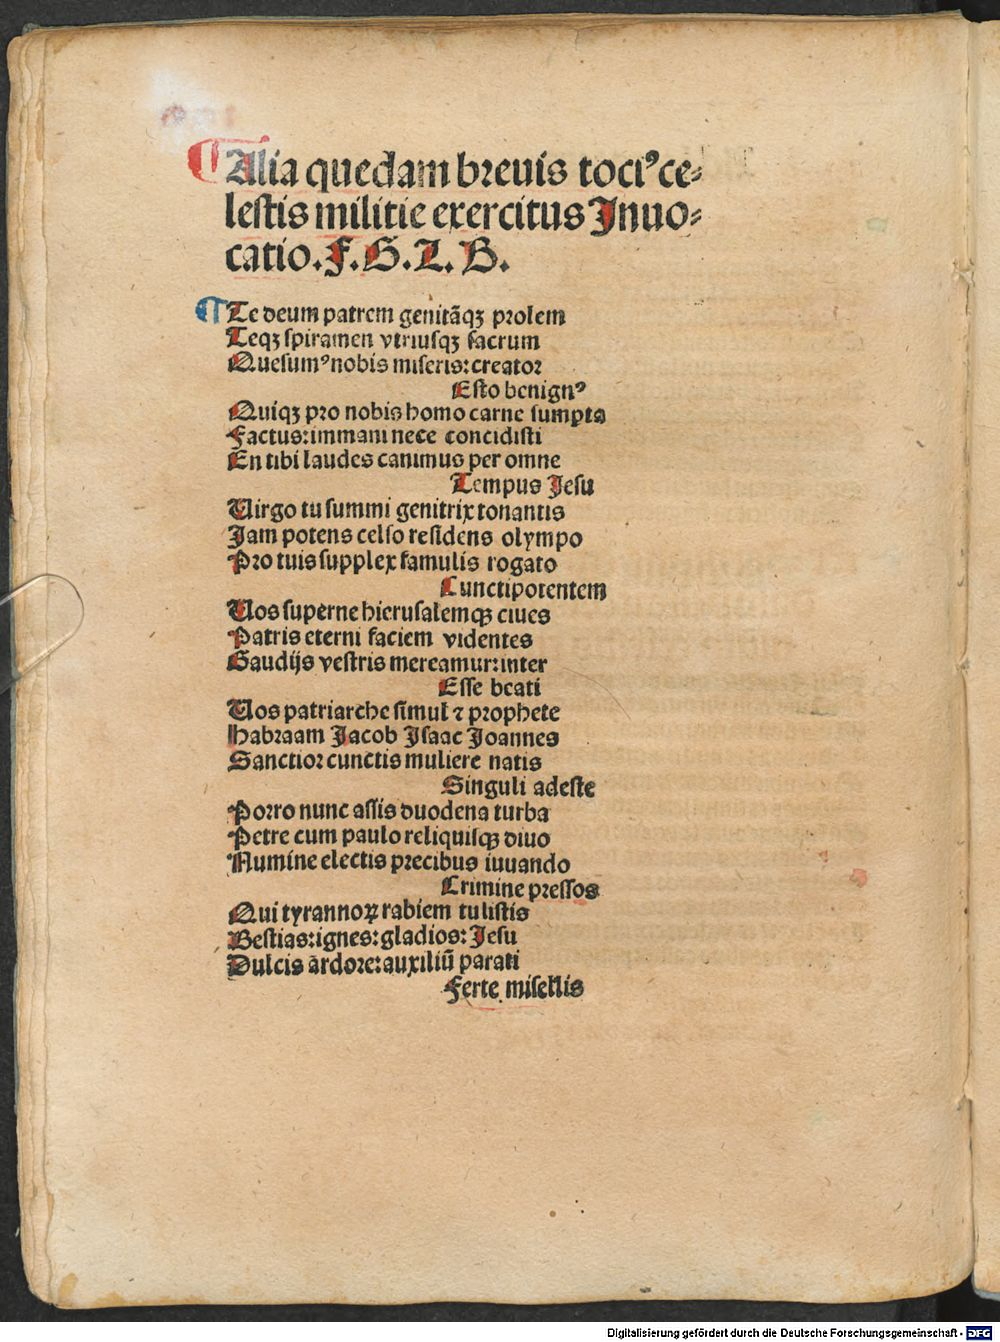 ¶ Alia quedam breuis tociꝰ ce⸗
lestis militie exercitus Inuo⸗
catio. F. G. L. B.
¶ Te deum patrem genitãqꝫ prolem
Teqꝫ spiramen vtriusqꝫ sacrum
Quesumꝰ nobis miseris: creator
Esto benignꝰ
Quiqꝫ pro nobis homo carne sumpta
Factus: immani nece concidisti
En tibi laudes canimus per omne
Tempus Jesu
Uirgo tu summi genitrix tonantis
Jam potens celso residens olympo
Pro tuis supplex famulis rogato
Cunctipotentem
Uos superne hierusalemqꝫ ciues
Patris eterni faciem videntes
Gaudijs vestris mereamur: inter
Esse beati
Uos patriarche simul ⁊ prophete
Habraam Jacob Isaac Joannes
Sanctior cunctis muliere natis
Singuli adeste
Porro nunc assis duodena turba
Petre cum paulo reliquisqꝫ diuo
Numine electis precibus iuuando
Crimine pressos
Qui tyrannoꝝ rabiem tulistis
Bestias: ignes: gladios: Jesu
Dulcis ãrdore: auxiliũ parati
Ferte misellis
Digitalisierung gefördert durch die Deutsche Forschungsgemeinschaft - DFG